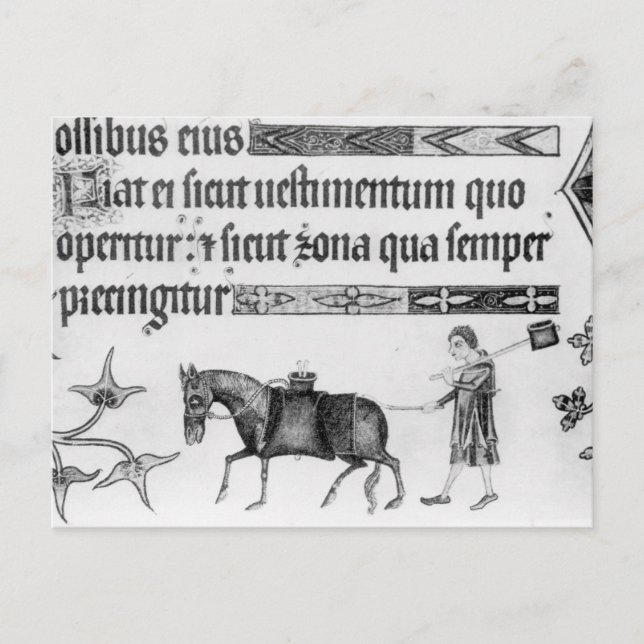 ossibus eius
Fiat ei sicut uestimentum quo
operitur: ⁊ sicut zona qua semper
precingitur